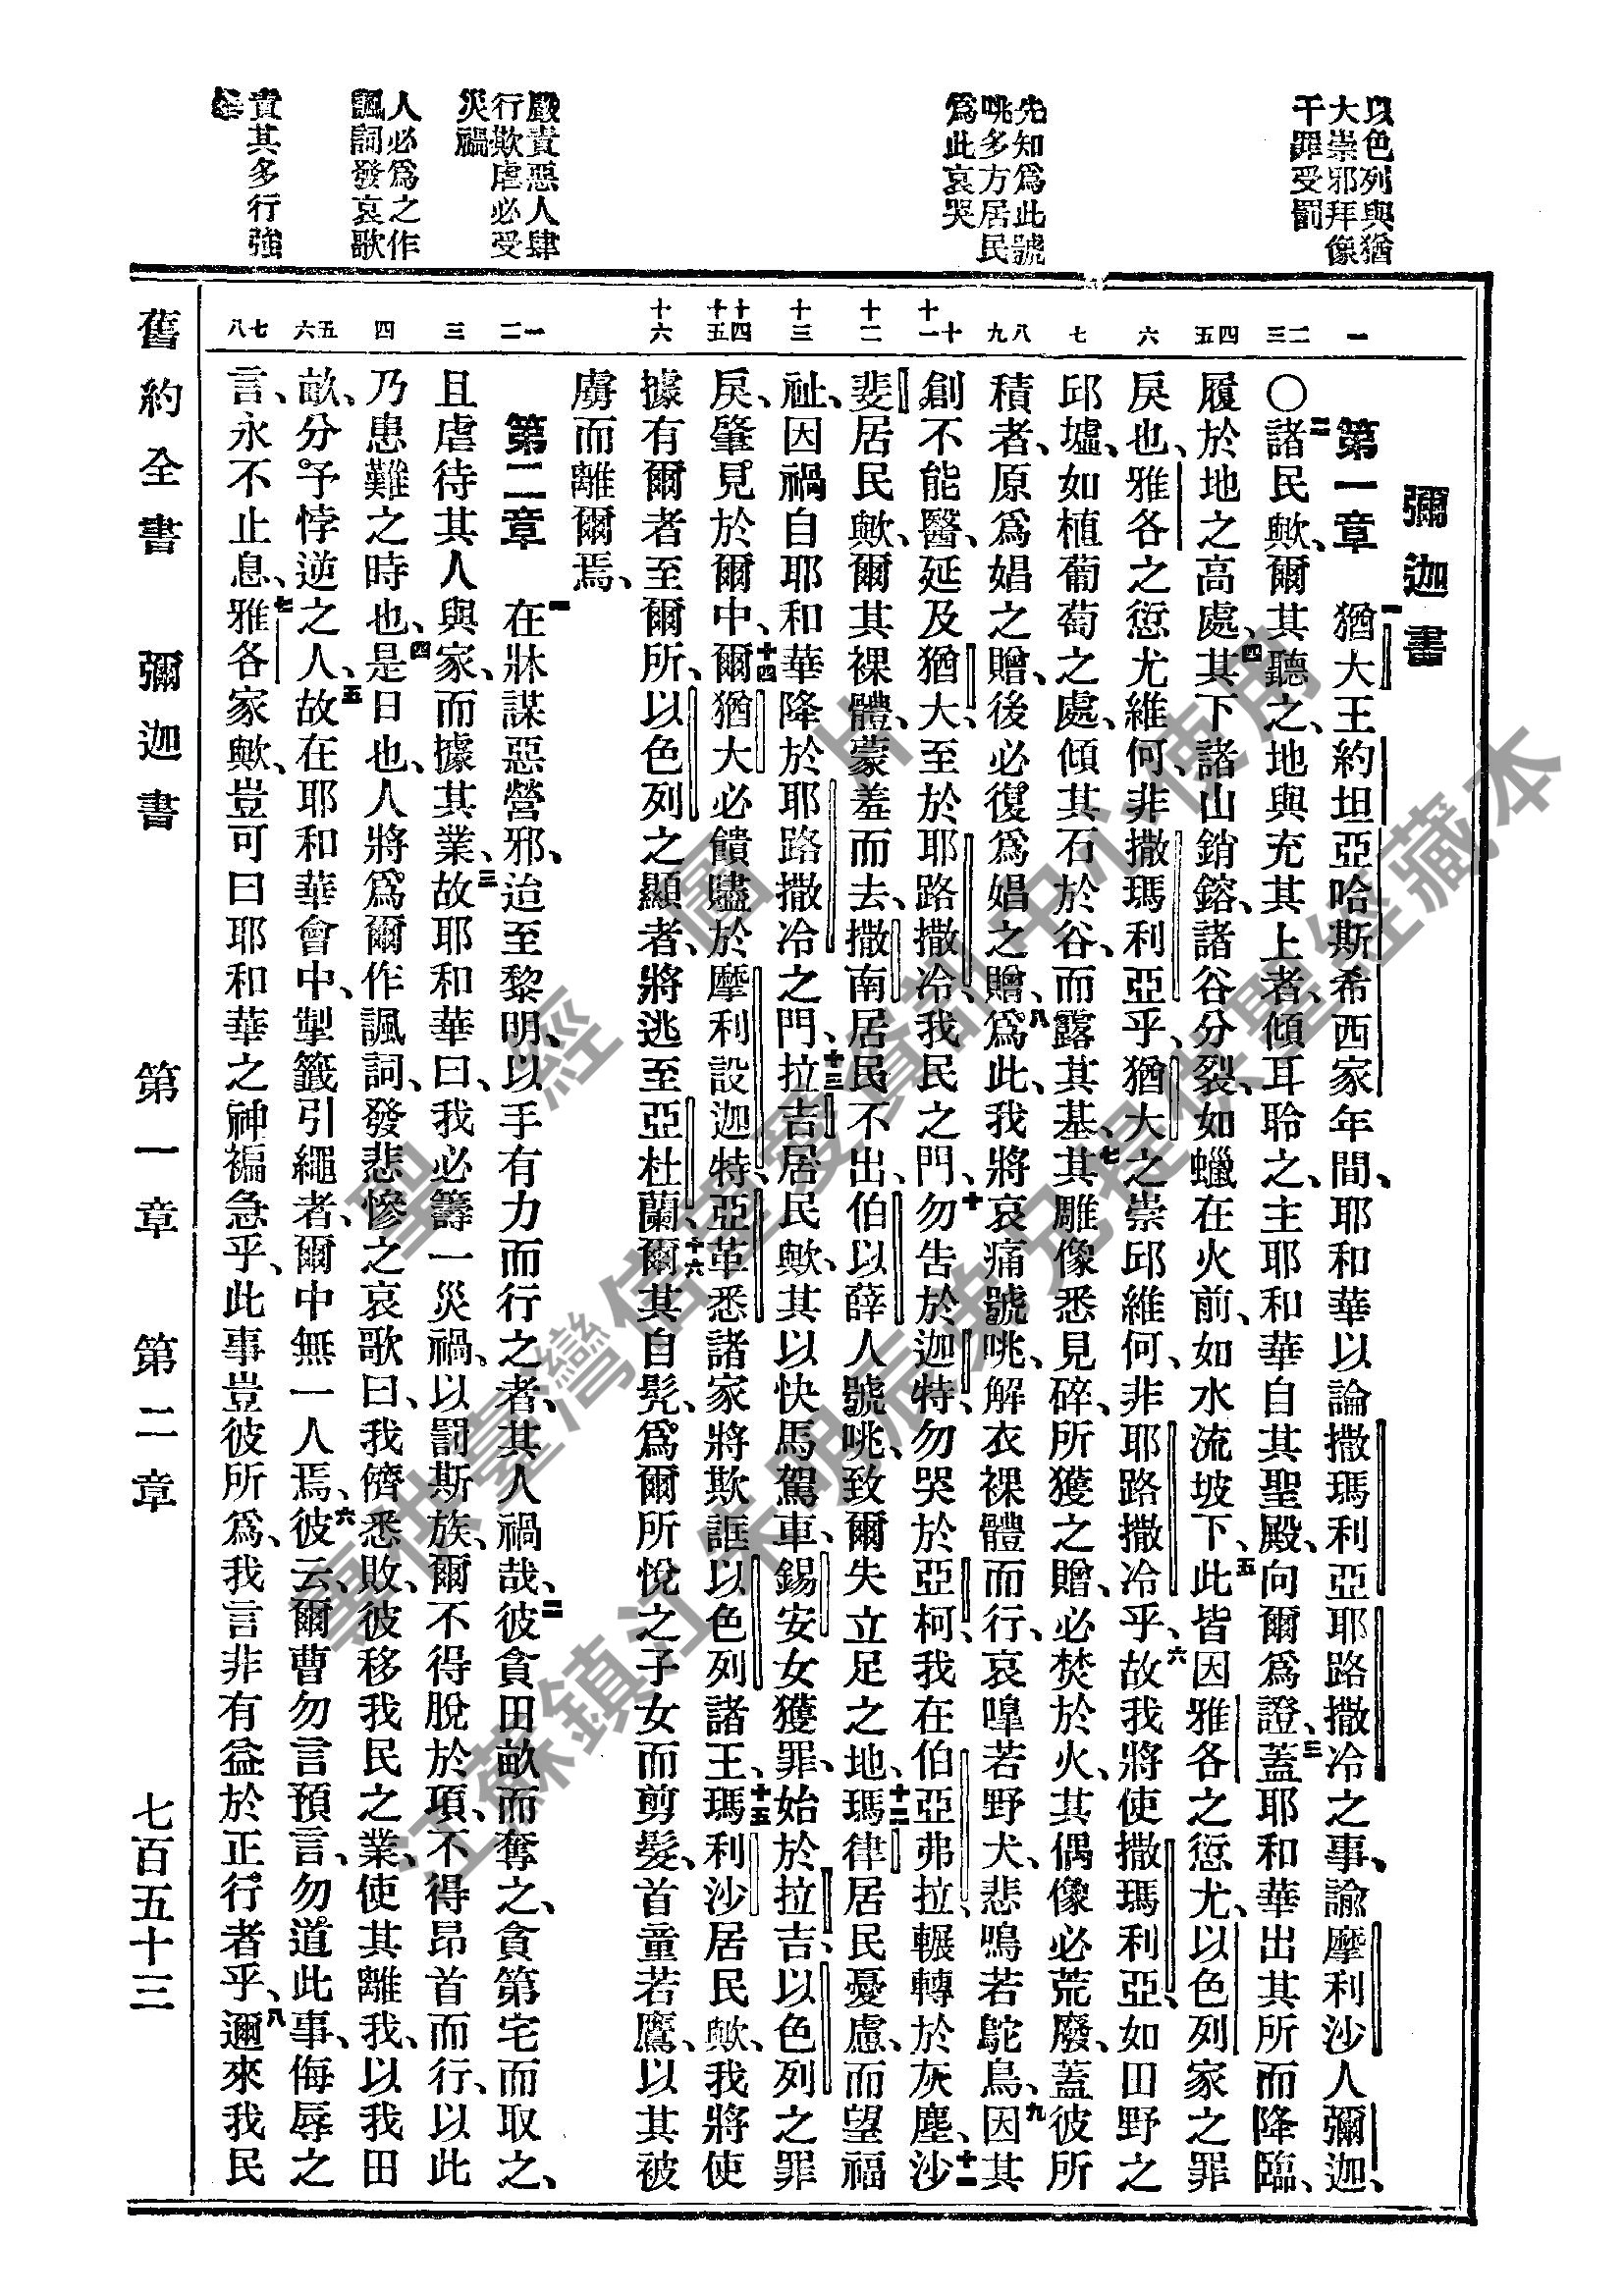 以色列與猶
大崇邪拜像
干罪受罰
先知爲此號
咷多方居民
爲此哀哭
嚴責惡人肆
行欺虐必受
災禍
人必爲之作
諷詞發哀歌
責其多行強
一
二三
四五
六
七
八九
十十一
十二
十三
十四十五
十六
一二
三
四
五六
七八
彌迦書
第一章 一猶大王約坦亞哈斯希西家年間、耶和華以論撒瑪利亞耶路撒冷之事、諭摩利沙人彌迦、
〇二諸民歟、爾其聽之、地與充其上者、傾耳聆之、主耶和華自其聖殿、向爾爲證、三蓋耶和華出其所而降臨、
履於地之高處、四其下諸山銷鎔、諸谷分裂、如蠟在火前、如水流坡下、五此皆因雅各之愆尤、以色列家之罪
戾也、雅各之愆尤維何、非撒瑪利亞乎、猶大之崇邱維何、非耶路撒冷乎、六故我將使撒瑪利亞、如田野之
邱墟、如植葡萄之處、傾其石於谷、而露其基、七其雕像悉見碎、所獲之贈、必焚於火、其偶像必荒廢、蓋彼所
積者、原爲娼之贈、後必復爲娼之贈、八爲此、我將哀痛號咷、解衣裸體而行、哀嘷若野犬、悲鳴若鴕鳥、九因其
創不能醫、延及猶大、至於耶路撒冷、我民之門、十勿告於迦特、勿哭於亞柯、我在伯亞弗拉、輾轉於灰塵、十一沙
斐居民歟、爾其裸體、蒙羞而去、撒南居民不出、伯以薛人號咷、致爾失立足之地、十二瑪律居民憂慮、而望福
祉、因禍自耶和華降於耶路撒冷之門、十三拉吉居民歟、其以快馬駕車、錫安女獲罪、始於拉吉、以色列之罪
戾、肇見於爾中、十四爾猶大必饋贐於摩利設迦特、亞革悉諸家將欺誆以色列諸王、十五瑪利沙居民歟、我將使
據有爾者至爾所、以色列之顯者、將逃至亞杜蘭、十六爾其自髡、爲爾所悅之子女而剪髮、首童若鷹、以其被
虜而離爾焉、
第二章 一在牀謀惡營邪、迨至黎明、以手有力而行之者、其人禍哉、二彼貪田畝而奪之、貪第宅而取之、
且虐待其人與家、而據其業、三故耶和華曰、我必籌一災禍、以罰斯族、爾不得脫於項、不得昂首而行、以此
乃患難之時也、四是日也、人將爲爾作諷詞、發悲慘之哀歌曰、我儕悉敗、彼移我民之業、使其離我、以我田
畝、分予悖逆之人、五故在耶和華會中、掣籤引繩者、爾中無一人焉、六彼云、爾曹勿言預言、勿道此事、侮辱之
言、永不止息、七雅各家歟、豈可曰耶和華之神褊急乎、此事豈彼所爲、我言非有益於正行者乎、八邇來我民
舊約全書 彌迦書 第一章 第二章 七百五十三
聖經圖片
專供臺灣信望愛資訊中心使用
江蘇鎮江朱明辰弟兄提供聖經藏本